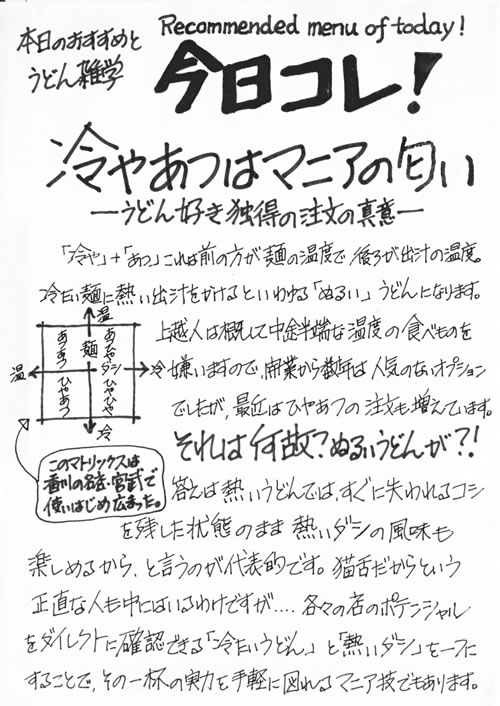 本日のおすすめと
うどん雑学
Recommended menu of today!
今日コレ!
冷やあつはマニアの匂い
―うどん好き独得の注文の真意―
「冷や」+「あつ」これは前の方が麺の温度で、後ろが出汁の温度。
冷たい麺に熱い出汁をかけるといわゆる「ぬるい」うどんになります。
温
麺
温
ダシ
冷
冷
あつあつ
あつひや
ひやあつ
ひやひや
このマトリックスは
香川の名店・宮武で
使いはじめ広まった。
上越人は概して中途半端な温度の食べものを
嫌いますので、開業から数年は人気のないオプション
でしたが、最近はひやあつの注文も増えています。
それは何故?ぬるいうどんが?!
答えは熱いうどんでは、すぐに失われるコシ
を残した状態のまま熱いダシの風味も
楽しめるから、と言うのが代表的です。猫舌だからという
正直な人も中にはいるわけですが....各々の店のポテンシャル
をダイレクトに確認できる「冷たいうどん」と「熱いダシ」を一つに
することで、その一杯の実力を手軽に図れるマニア技でもあります。